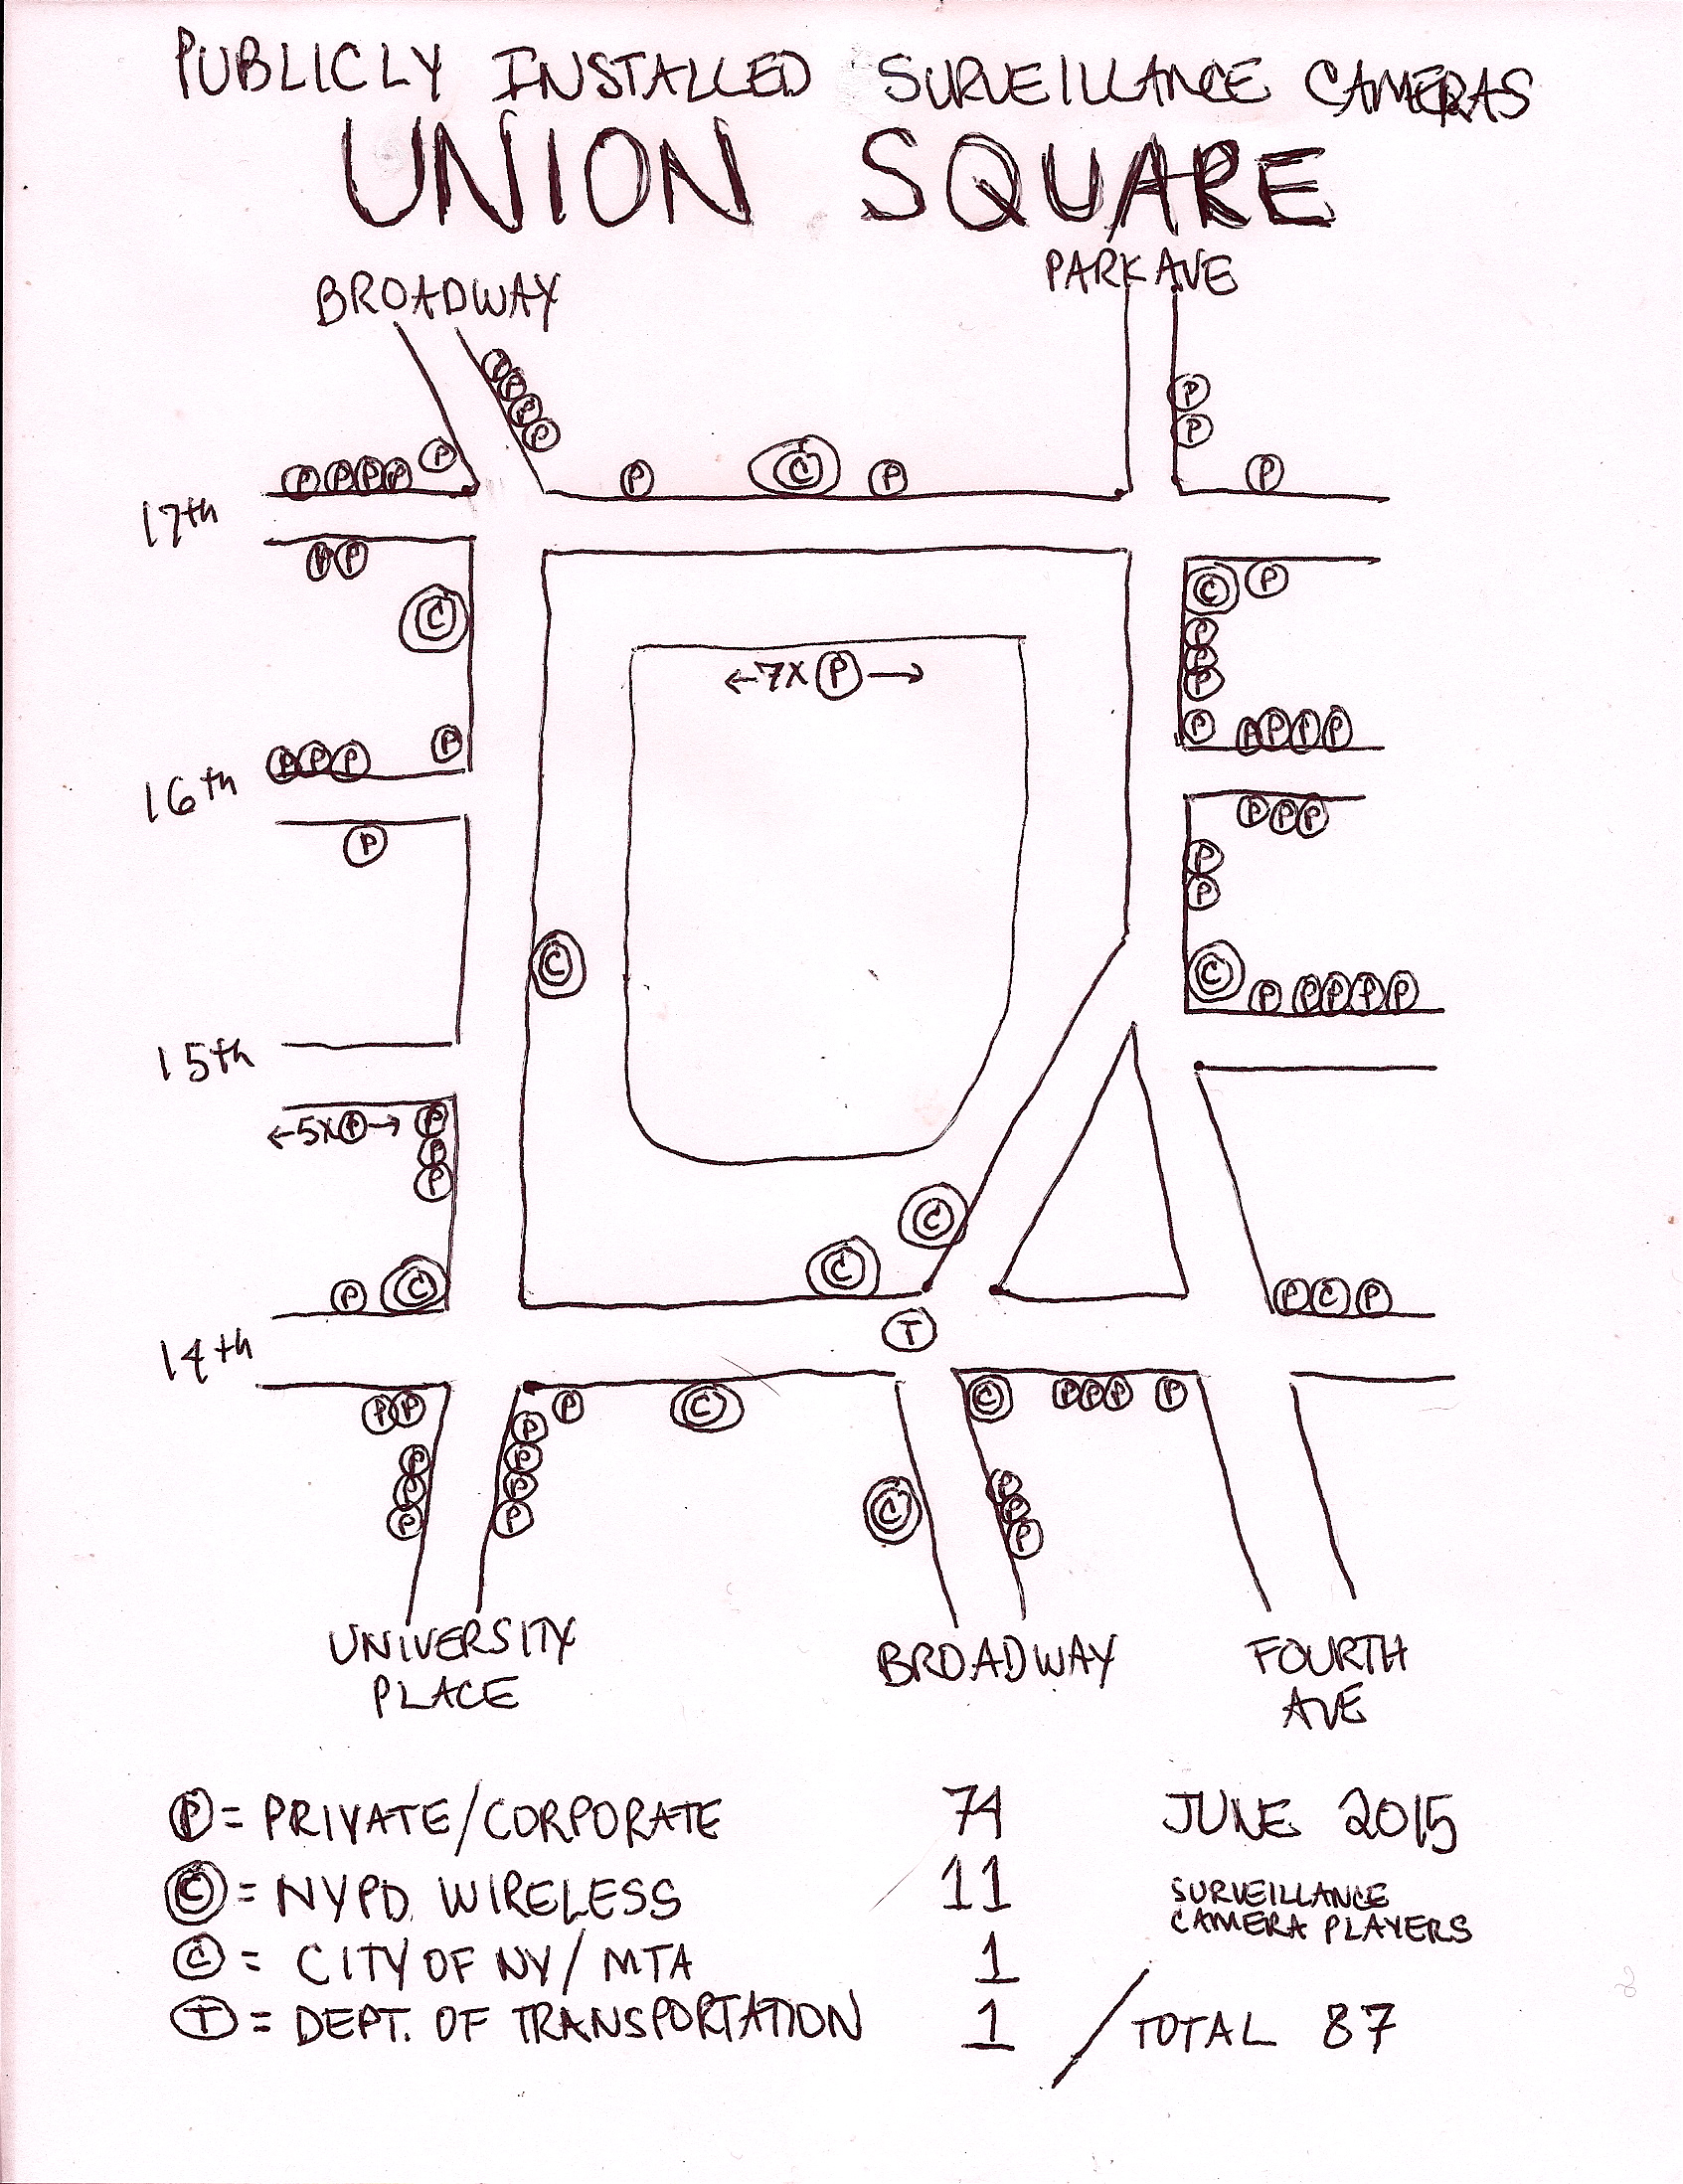 PUBLICLY INSTALLED SURVEILLANCE CAMERAS
UNION SQUARE
PARK AVE
BROADWAY
P
P
P
P
P
P
P P P P P
P
C
P
P
17th
P P
C
C P
P
P
P
P
←7X P→
P P P P
P P P
P
16th
P
P P P
P
P
C
C
P P P P P
15th
←5X P→
P
P
P
C
C
P
C
P C P
T
14th
P P
P
P
P
P
P
P
P
P
C
C
P P P P
C
P
P
P
UNIVERSITY
PLACE
BROADWAY
FOURTH
AVE
P = PRIVATE/CORPORATE 74
C = NYPD WIRELESS 11
C = CITY OF NY/MTA 1
T = DEPT. OF TRANSPORTATION 1 / TOTAL 87
JUNE 2015
SURVEILLANCE
CAMERA PLAYERS